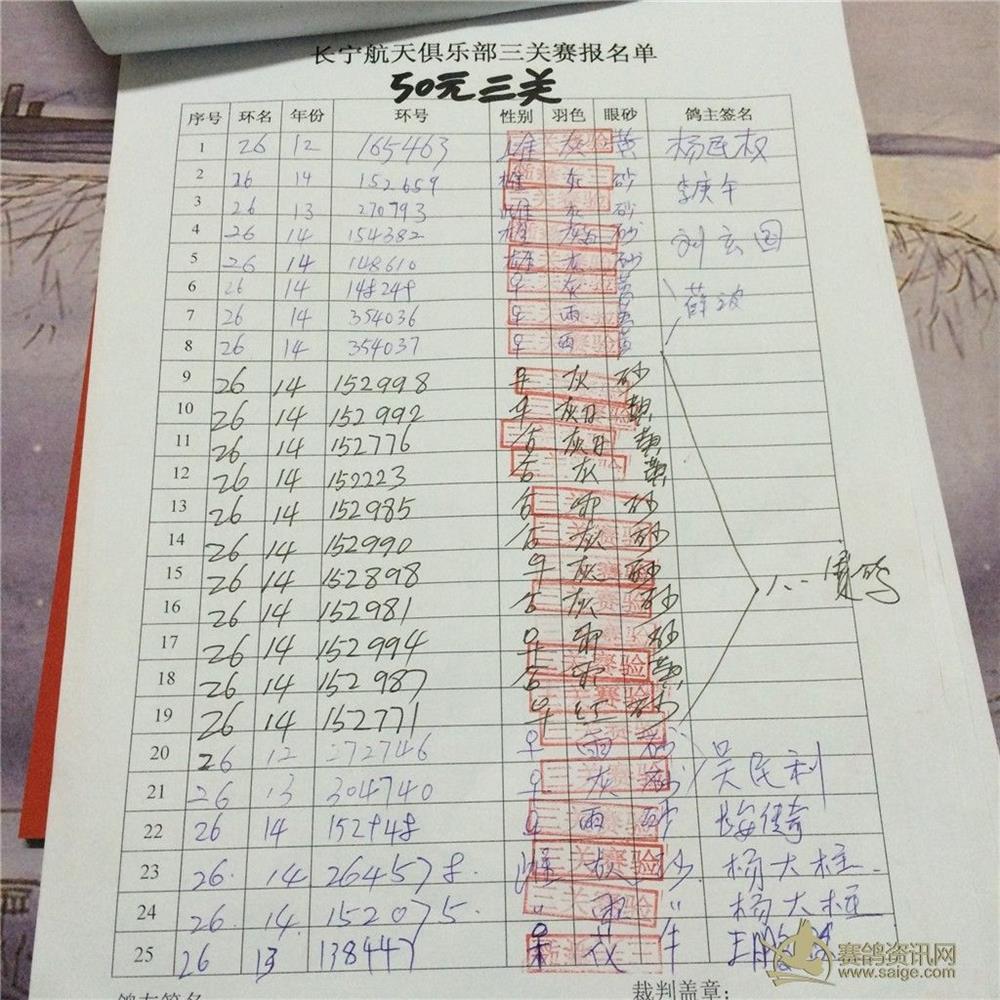 长宁航天俱乐部三关赛报名单
50元三关
序号 环名 年份 环号 性别 羽色 眼砂 鸽主签名
1 26 12 165463 雄 灰 黄 杨民权
2 26 14 152659 雄 灰 砂 李庚午
3 26 13 270793 雌 灰 砂
4 26 14 154382 雄 砂
5 26 14 148610 雄 灰 砂
6 26 14 148248 ♀ 灰 黄
7 26 14 354036 ♀ 雨 黄 薛波
8 26 14 354037 ♀ 雨 黄
9 26 14 152998 ♀ 灰 砂
10 26 14 152992 ♀ 灰白 黄
11 26 14 152776 灰白 黄
12 26 14 152223 灰 黄
13 26 14 152985 雨 砂
14 26 14 152990 灰 砂
15 26 14 152898 ♀ 灰 砂
16 26 14 152981 灰 砂
17 26 14 152994 ♀ 雨 砂
18 26 14 152987 雨 黄
19 26 14 152771 ♀ 红 砂
20 26 12 272746 ♀ 雨 砂
21 26 13 304740 ♀ 灰 砂 吴民利
22 26 14 152948 ♀ 雨 砂
23 26. 14 264578. 雌 灰 砂. 杨大柱.
24 26. 14. 152075. 〃 雨 〃 杨大柱
25 26 13 138447 灰 牛
鸽主签名
裁判盖章：
赛鸽资讯网
www.saige.com